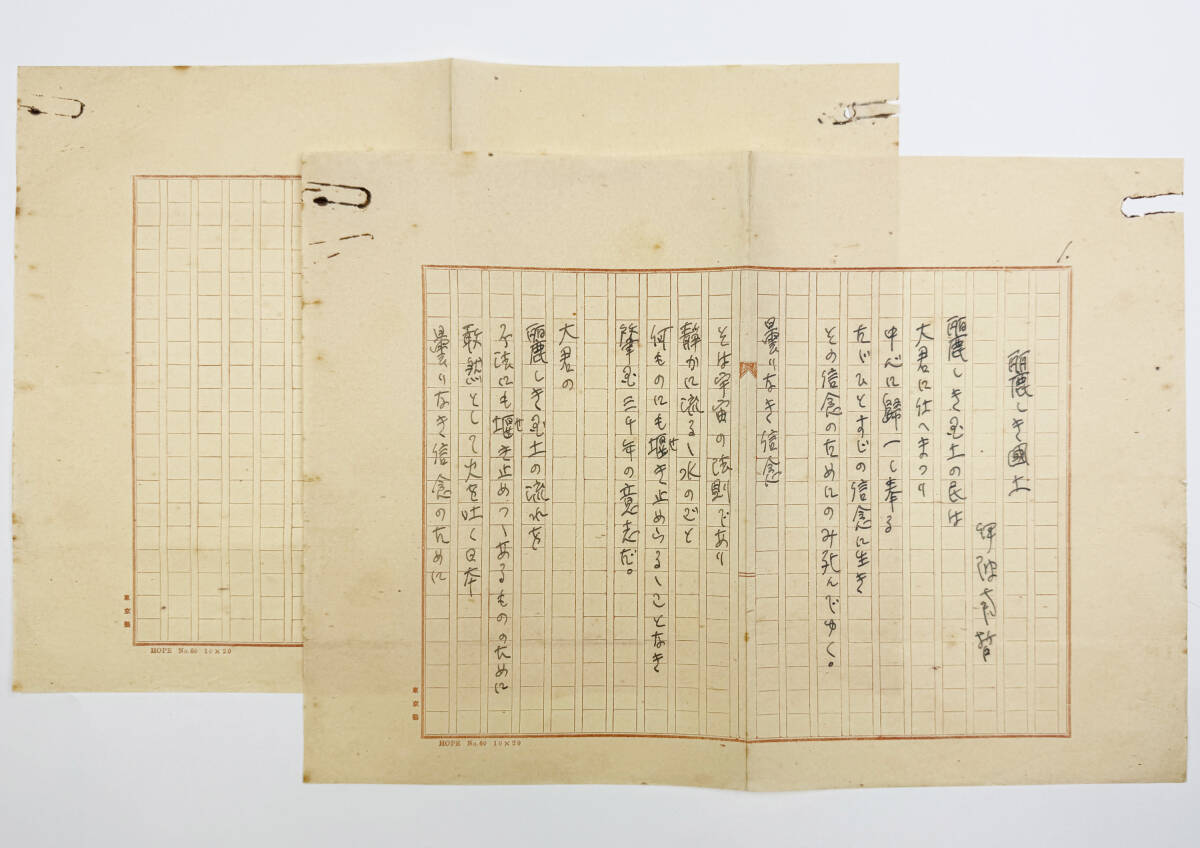 1.
麗しき國土
伊波南哲
麗しき国土の民は
大君に仕へまつり
中心に歸一し奉る
たゞひとすぢの信念に生き
その信念のためにのみ死んでゆく。
曇りなき信念。
そは宇宙の法則であり
静かに流るゝ水のごと
何ものにも堰き止めらるゝことなき
せ
肇国三千年の意志だ。
大君の
麗しき国土の流れを
不法にも堰き止めつゝあるもののために
せ
敢然として火を吐く日本
曇りなき信念のために
東京
HOPE No.60 10×20
東京
HOPE No.60 10×20